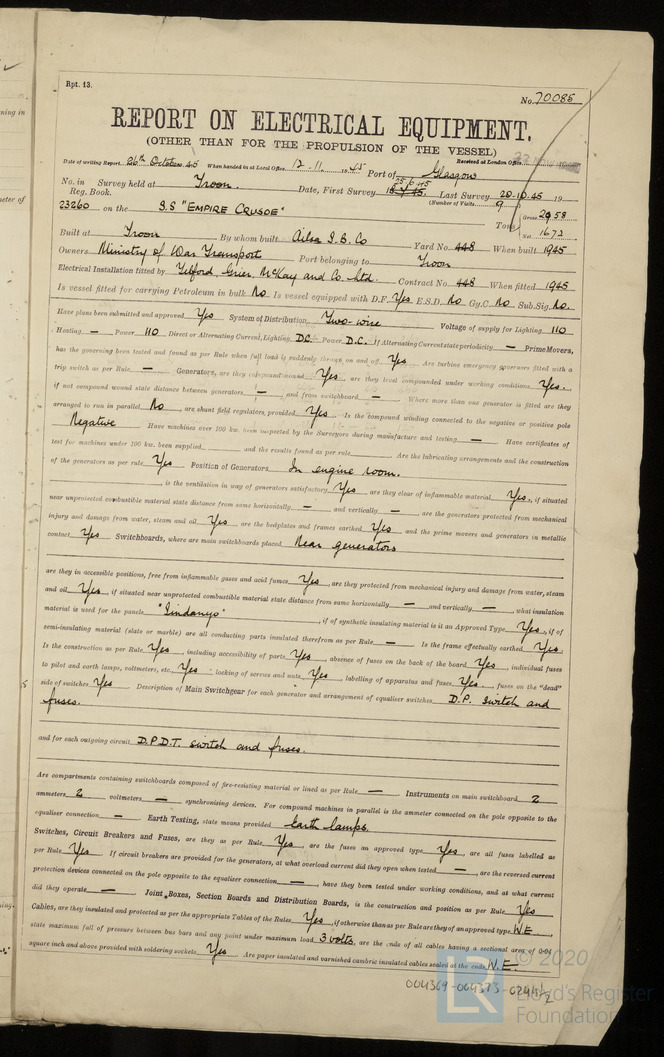 Rpt. 13.
No. 70085
REPORT ON ELECTRICAL EQUIPMENT.
(OTHER THAN FOR THE PROPULSION OF THE VESSEL)
Date of writing Report 26th October 45 When handed in at Local Office 12.11. 1945 Port of Glasgow Received at London Office
No. in Reg. Book. Survey held at Troon. Date, First Survey Last Survey 20.10.45 19
(Number of Visits 9
23260 on the S.S "EMPIRE CRUSOE" Tons Gross 2958
Net 1673
Built at Troon By whom built Ailsa S.B. Co Yard No. 448 When built 1945
Owners Ministry of War Transport Port belonging to Troon
Electrical Installation fitted by Telford, Grier, McKay and Co Ltd. Contract No. 448 When fitted 1945
Is vessel fitted for carrying Petroleum in bulk No Is vessel equipped with D.F. Yes E.S.D. No Gy.C. No Sub.Sig. No.
Have plans been submitted and approved Yes System of Distribution Two-wire Voltage of supply for Lighting 110
Heating — Power 110 Direct or Alternating Current, Lighting D.C. Power D.C. If Alternating Current state periodicity — Prime Movers,
has the governing been tested and found as per Rule when full load is suddenly thrown on and off Yes Are turbine emergency governors fitted with a
trip switch as per Rule — Generators, are they compound wound Yes, are they level compounded under working conditions Yes.
if not compound wound state distance between generators — and from switchboard — Where more than one generator is fitted are they
arranged to run in parallel No, are shunt field regulators provided Yes Is the compound winding connected to the negative or positive pole
Negative Have machines over 100 kw. been inspected by the Surveyors during manufacture and testing — Have certificates of
test for machines under 100 kw. been supplied and the results found as per rule Are the lubricating arrangements and the construction
of the generators as per rule Yes Position of Generators In engine room.
, is the ventilation in way of generators satisfactory Yes, are they clear of inflammable material Yes, if situated
near unprotected combustible material state distance from same horizontally — and vertically —, are the generators protected from mechanical
injury and damage from water, steam and oil Yes, are the bedplates and frames earthed Yes and the prime movers and generators in metallic
contact Yes Switchboards, where are main switchboards placed Near generators
are they in accessible positions, free from inflammable gases and acid fumes Yes, are they protected from mechanical injury and damage from water, steam
and oil Yes, if situated near unprotected combustible material state distance from same horizontally — and vertically —, what insulation
material is used for the panels "Sindanyo", if of synthetic insulating material is it an Approved Type Yes, if of
semi-insulating material (slate or marble) are all conducting parts insulated therefrom as per Rule — Is the frame effectually earthed Yes
Is the construction as per Rule Yes, including accessibility of parts Yes, absence of fuses on the back of the board Yes, individual fuses
to pilot and earth lamps, voltmeters, etc. Yes locking of screws and nuts Yes, labelling of apparatus and fuses Yes, fuses on the "dead"
side of switches Yes Description of Main Switchgear for each generator and arrangement of equaliser switches D.P. switch and
fuses.
and for each outgoing circuit D.P.D.T. switch and fuses.
Are compartments containing switchboards composed of fire-resisting material or lined as per Rule — Instruments on main switchboard 2
ammeters 2 voltmeters — synchronising devices. For compound machines in parallel is the ammeter connected on the pole opposite to the
equaliser connection — Earth Testing, state means provided Earth lamps.
Switches, Circuit Breakers and Fuses, are they as per Rule Yes, are the fuses an approved type Yes, are all fuses labelled as
per Rule Yes If circuit breakers are provided for the generators, at what overload current did they open when tested —, are the reversed current
protection devices connected on the pole opposite to the equaliser connection —, have they been tested under working conditions, and at what current
did they operate — Joint Boxes, Section Boards and Distribution Boards, is the construction and position as per Rule Yes
Cables, are they insulated and protected as per the appropriate Tables of the Rules Yes, if otherwise than as per Rule are they of an approved type W.E.
state maximum fall of pressure between bus bars and any point under maximum load 3 volts, are the ends of all cables having a sectional area of 0.01
square inch and above provided with soldering sockets Yes Are paper insulated and varnished cambric insulated cables sealed at the ends W.E.
004369-004373-0244 1/2
LR
© 2020
Lloyd's Register
Foundation